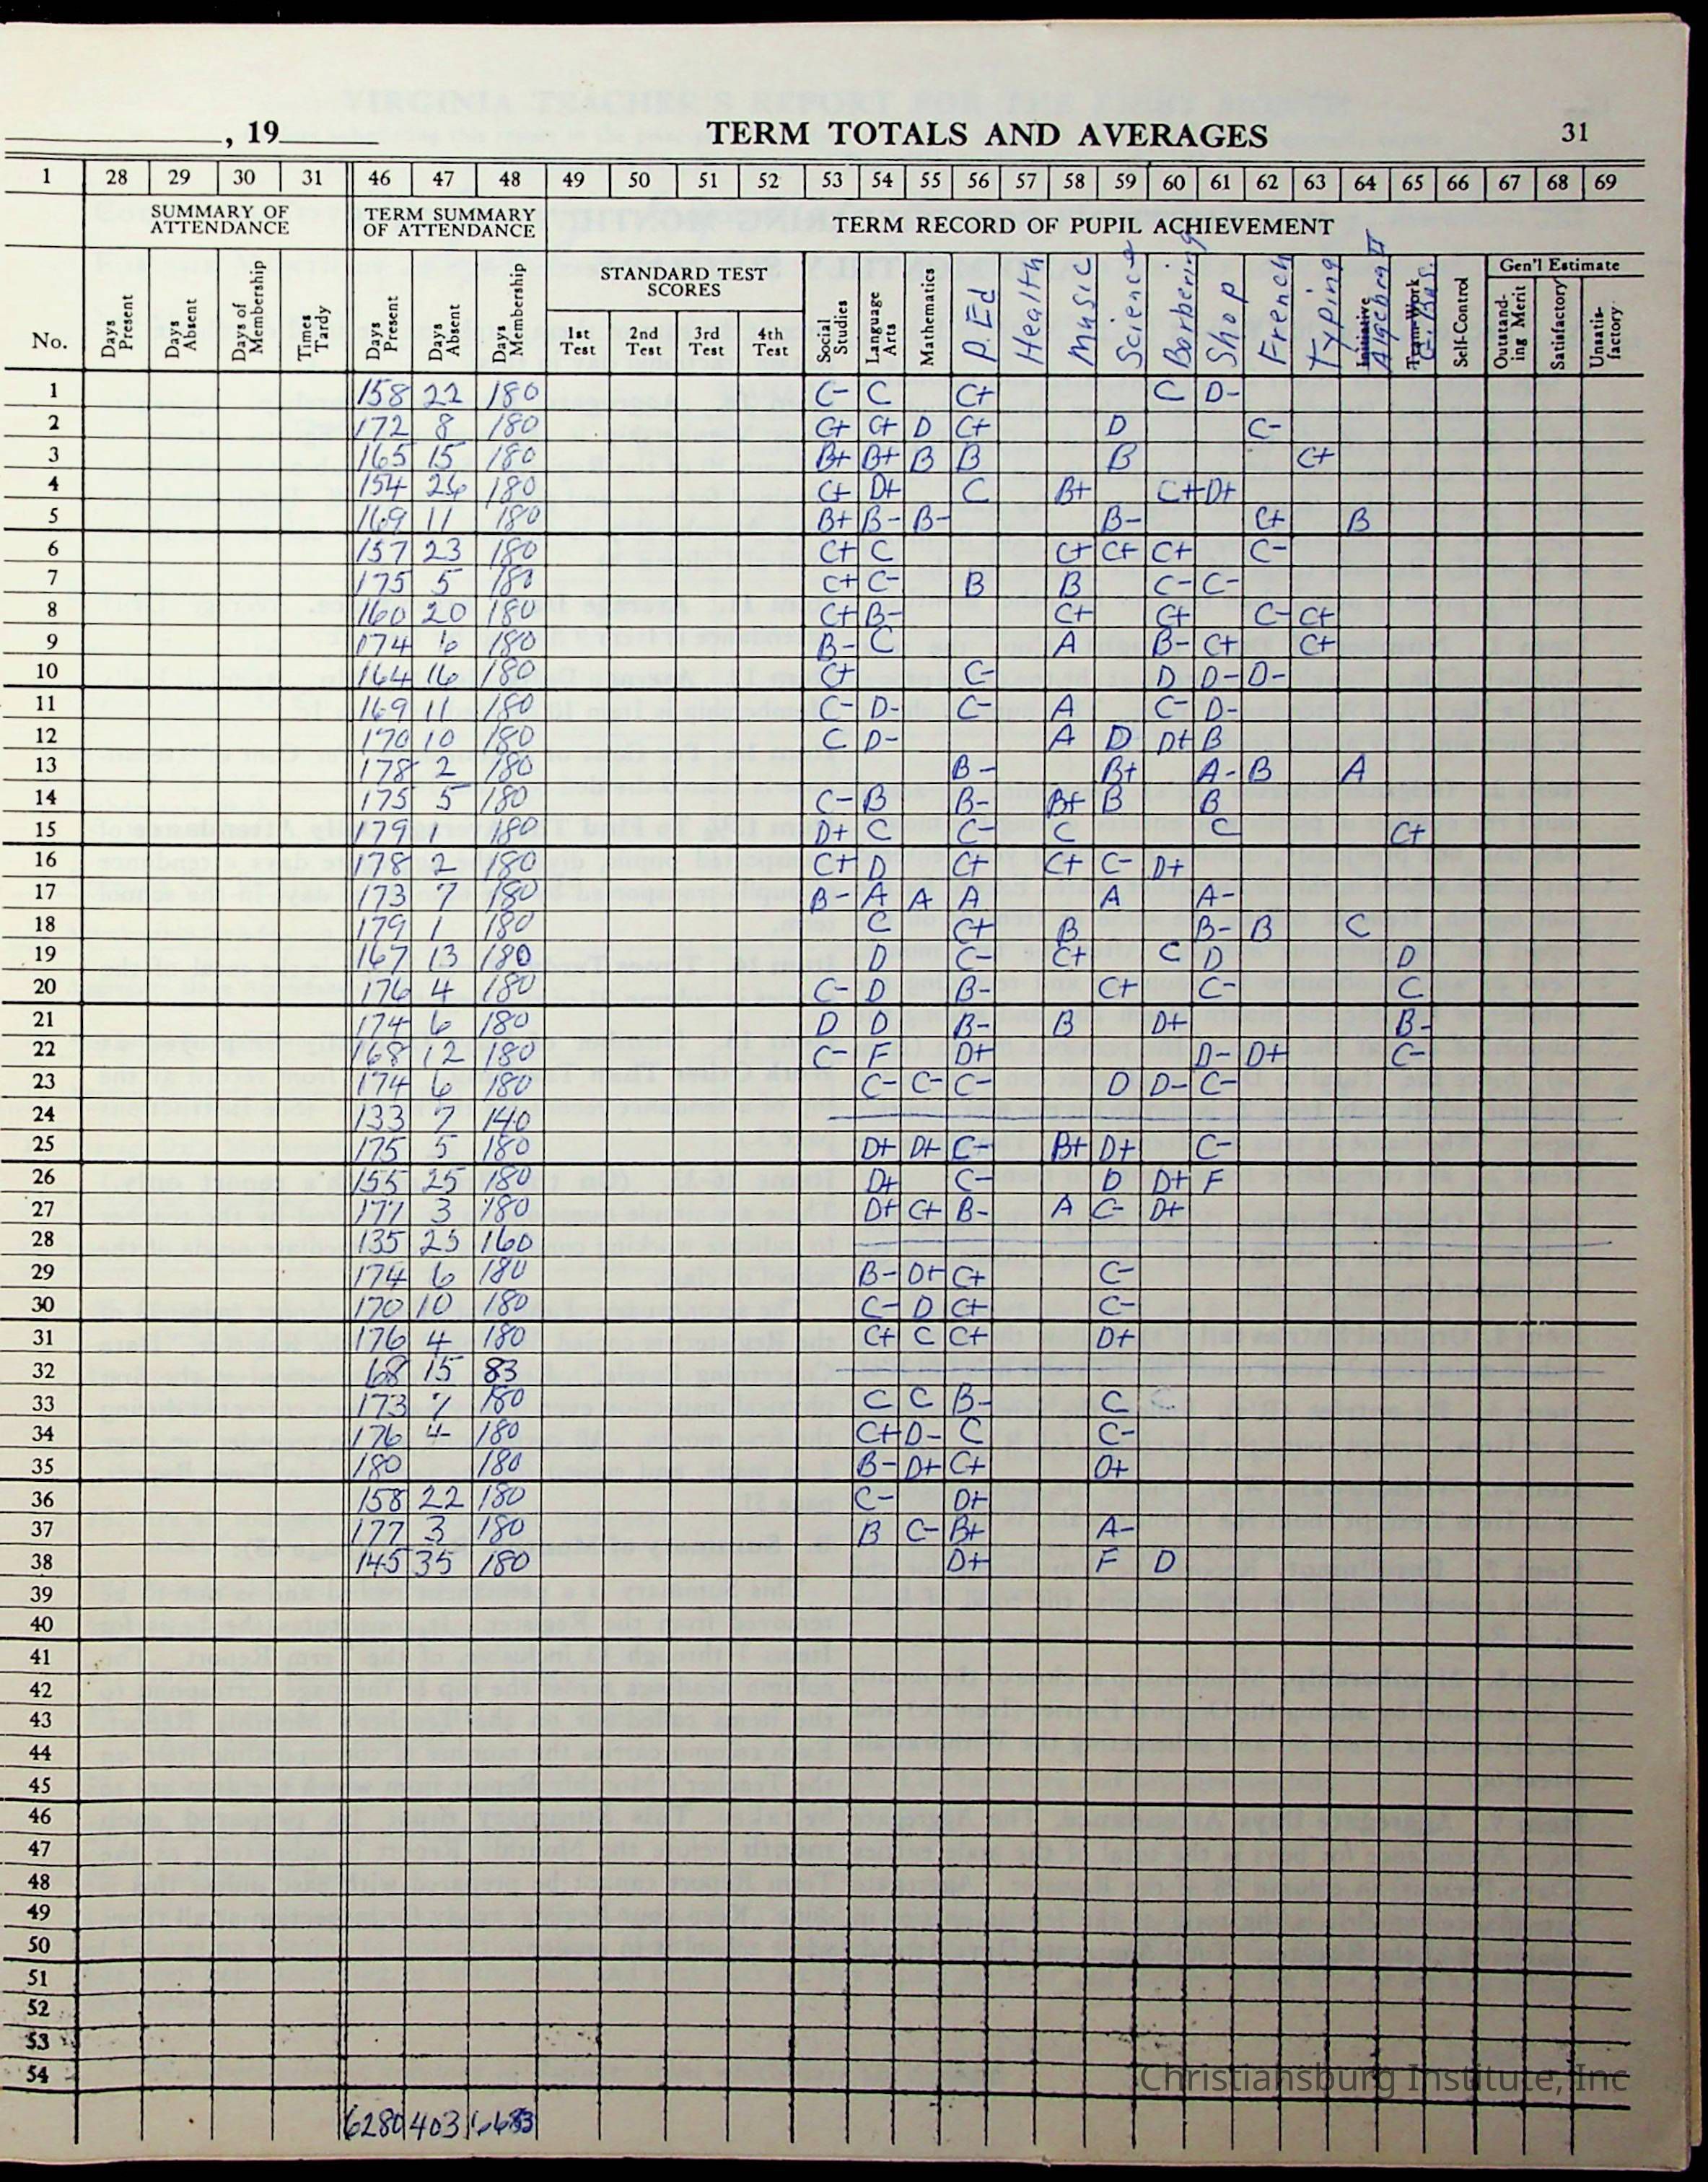 , 19 TERM TOTALS AND AVERAGES 31
1 28 29 30 31 46 47 48 49 50 51 52 53 54 55 56 57 58 59 60 61 62 63 64 65 66 67 68 69
SUMMARY OF ATTENDANCE TERM SUMMARY OF ATTENDANCE TERM RECORD OF PUPIL ACHIEVEMENT
STANDARD TEST SCORES Gen'l Estimate
No. Days Present Days Absent Days of Membership Times Tardy Days Present Days Absent Days Membership 1st Test 2nd Test 3rd Test 4th Test Social Studies Language Arts Mathematics P. Ed Health Music Science Barbering Shop French Typing Initiative Algebra II Team-Work G. Bus. Self-Control Outstanding Merit Satisfactory Unsatisfactory
1 158 22 180 C- C C+ C D-
2 172 8 180 C+ C+ D C+ D C-
3 165 15 180 B+ B+ B B B C+
4 154 26 180 C+ D+ C B+ C+ D+
5 169 11 180 B+ B- B- B- C+ B
6 157 23 180 C+ C C+ C+ C+ C-
7 175 5 180 C+ C- B B C- C-
8 160 20 180 C+ B- C+ C+ C- C+
9 174 6 180 B- C A B- C+ C+
10 164 16 180 C+ C- D D- D-
11 169 11 180 C- D- C- A C- D-
12 170 10 180 C D- A D D+ B
13 178 2 180 B- B+ A- B A
14 175 5 180 C- B B- B+ B B
15 179 1 180 D+ C C- C C C+
16 178 2 180 C+ D C+ C+ C- D+
17 173 7 180 B- A A A A A-
18 179 1 180 C C+ B B- B C
19 167 13 180 D C- C+ C D D
20 176 4 180 C- D B- C+ C- C
21 174 6 180 D D B- B D+ B-
22 168 12 180 C- F D+ D- D+ C-
23 174 6 180 C- C- C- D D- C-
24 133 7 140
25 175 5 180 D+ D+ C- B+ D+ C-
26 155 25 180 D+ C- D D+ F
27 177 3 180 D+ C+ B- A C- D+
28 135 25 160
29 174 6 180 B- D+ C+ C-
30 170 10 180 C- D C+ C-
31 176 4 180 C+ C C+ D+
32 68 15 83
33 173 7 180 C C B- C
34 176 4 180 C+ D- C C-
35 180 180 B- D+ C+ D+
36 158 22 180 C- D+
37 177 3 180 B C- B+ A-
38 145 35 180 D+ F D
39
40
41
42
43
44
45
46
47
48
49
50
51
52
53
54
Christiansburg Institute, Inc
6280 403 6683